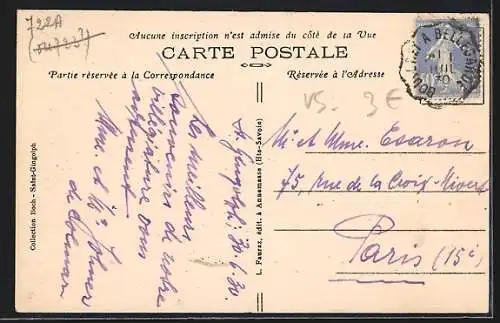 722A
Aucune inscription n'est admise du côté de la Vue
CARTE POSTALE
Partie réservée à la Correspondance
Réservée à l'Adresse
VS. 3€
St Gingolph, 30.6.30
Les meilleurs
souvenirs de notre
villégiature vous
adressent
Mme. et Mr.
Mr et Mme.
75, rue de la Croix-Nivert
Paris (15e)
Collection Boch - Saint-Gingolph
L. Fauraz, édit. à Annemasse (Hte-Savoie)
A BELLEGARDE